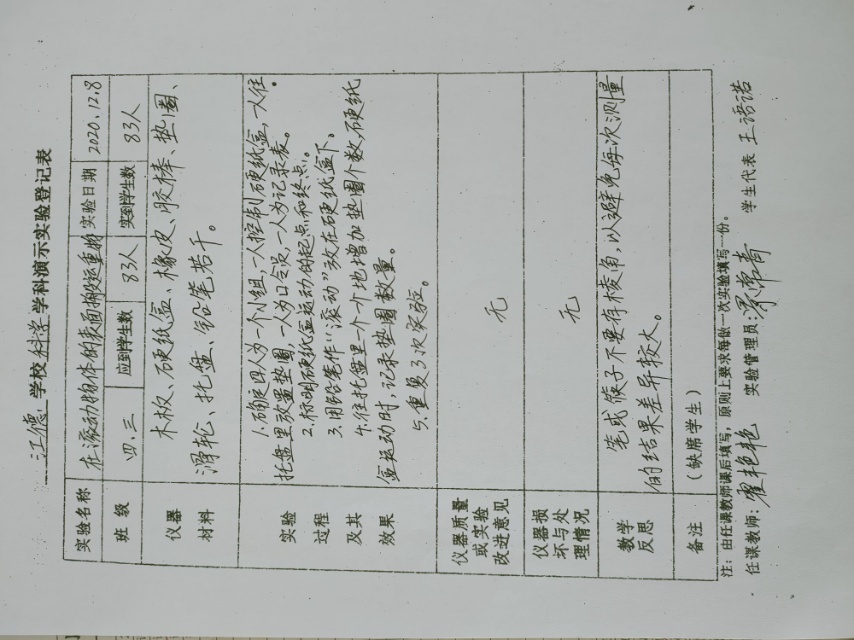 江德 学校 科学 学科演示实验登记表
实验名称 在滚动物体的表面搬运重物 实验日期 2020.12.8
班级 四.三 应到学生数 83人 实到学生数 83人
仪器材料 木板、硬纸盒、橡皮、胶棒、垫圈、
滑轮、托盘、铅笔若干。
实验过程及其效果 1.确定四人为一个小组,一人控制硬纸盒,一人往
托盘里放置垫圈,一人为口令员,一人为记录表。
2.标明硬纸盒运动的起点和终点。
3.用铅笔作“滚动”放在硬纸盒下。
4.往托盘里一个个地增加垫圈个数,硬纸
盒运动时,记录垫圈数量。
5.重复3次实验。
仪器质量或实验改进意见 无
仪器损坏与处理情况 无
教学反思 笔或筷子不要有棱角,以避免每次测量
的结果差异较大。
备注 (缺席学生)
注:由任课教师课后填写,原则上要求每做一次实验填写一份。
任课教师:翟艳艳 实验管理员: 学生代表 王语诺